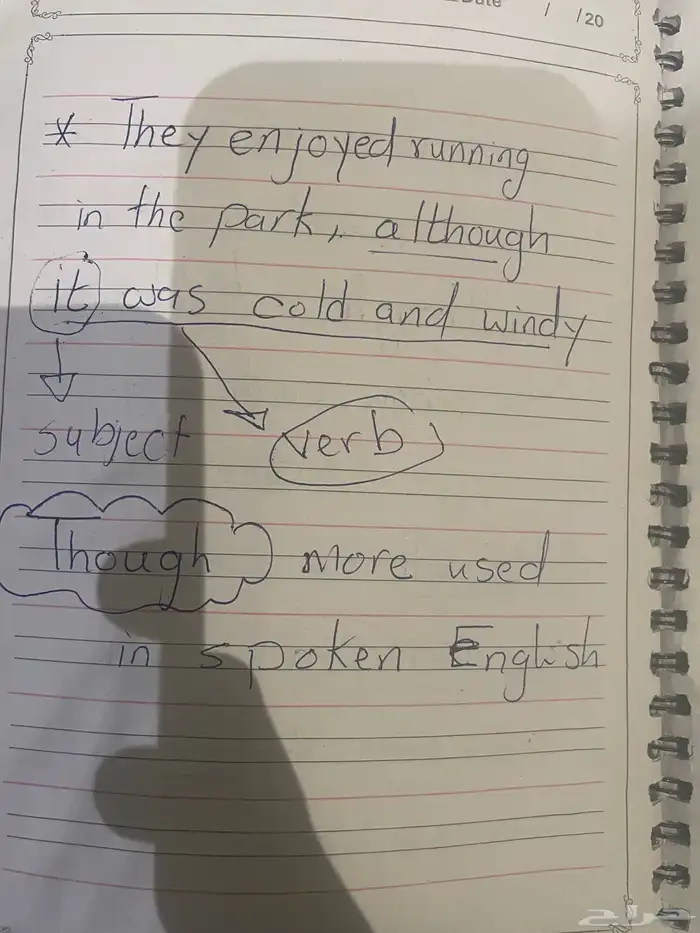 Date / /20
* They enjoyed running
in the park, although
it was cold and windy
subject verb
Though more used
in spoken English
حراج